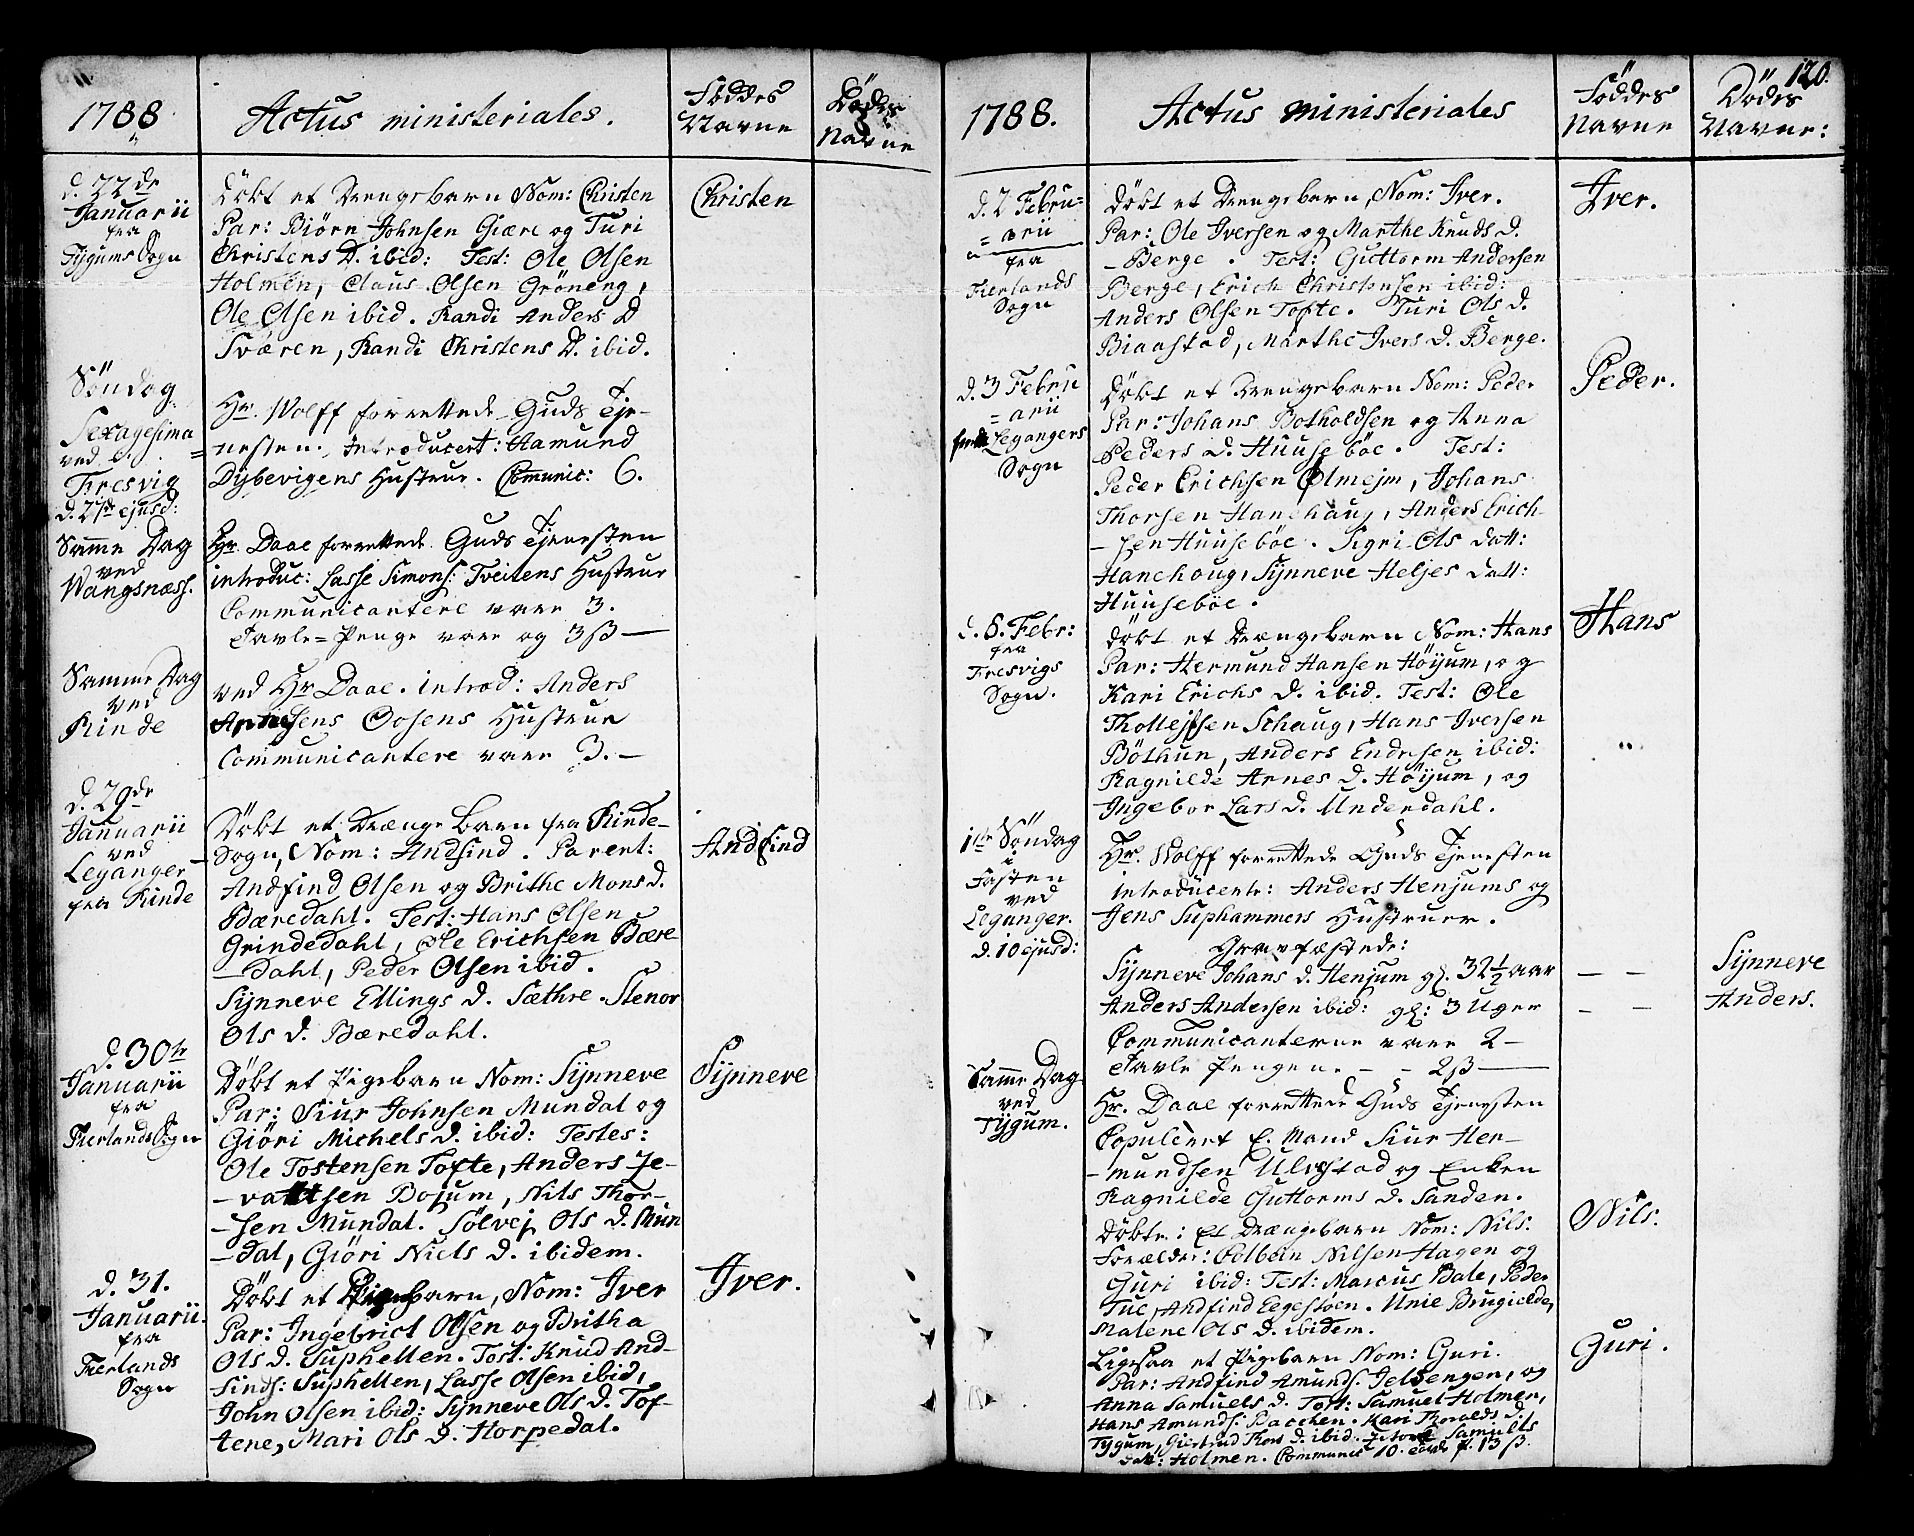 1788.
Actus ministeriales.
Föddes
Navne
Dödes
Navne
d. 22de
Januarii
fra
Tygums Sogn
Döbt et Drengebarn Nom: Christen
Par: Biörn Johnsen Giære og Turi
Christens D. ibid: Test: Ole Olsen
Holmen, Claus Olsen Gröneng,
Ole Olsen ibid. Randi Anders D
Sværen, Randi Christens D. ibid.
Christen
Söndag
Sexagesima
ved
Fresvig
d. 27de ejusd:
Hr. Wolff forrettede Guds Tje-
nesten, Introducert: Aamund
Dybevigens Hustrue. Comunic: 6.
Samme Dag
ved
Wangsness.
Hr. Daae forrettede Guds Tjenesten
introduc: Lasse Simons: Tveitens Hustrue
Communicantere vare 3.
Tavle=Penge vare og 3ß —
Samme Dag
ved
Rinde
ved Hr Daae. introd: Anders
Arnesens Oosens Hustrue
Communicantere vare 3. —
d. 29de
Januarii
ved
Leganger
fra Rinde
Döbt et Drænge Barn fra Rinde-
Sogn, Nom: Andfind. Parent:
Andfind Olsen og Brithe Mons d.
Bæredahl. Test: Hans Olsen
Grindedahl, Ole Erichsen Bære-
-dahl, Peder Olsen ibid.
Synneve Ellings d. Sæthre. Stenor
Ols d. Bæredahl.
Andfind
d. 30te
Januarii
fra
Fierlands Sogn
Döbt et Pigebarn Nom: Synneve
Par: Siur Johnsen Mundal og
Giöri Michels d. ibid: Testes:
Ole Tostensen Tofte, Anders Je-
-vattsen Bojum, Nils Thor-
-sen Mundal. Sölvej Ols d. Mun
-dal, Giöri Niels d. ibidem.
Synneve
d. 31.
Januarii.
fra
Fierlands
Sogn
Döbt et barn, Nom: Iver
Par: Ingebrict Olsen og Britha
Ols d. Suphellen. Test: Knud And-
finds: Suphellen, Lasse Olsen ibid,
John Olsen ibid: Synneve Ols d. Tof-
tene, Mari Ols d. Horpedal.
Iver.
120.
1788.
Actus ministeriales
Föddes
Navne
Dödes
Navne:
d. 2 Febru=
=arii
fra
Fierlands
Sogn
Döbt et Drengebarn, Nom: Iver.
Par: Ole Iversen og Marthe Knuds d.
-Berge. Test: Guttorm Andersen
Berge, Erich Christensen ibid:
Anders Olsen Tofte. Turi Ols d.
Biaastad, Marthe Ivers d. Berge.
Iver.
d. 3 Febru
=arii
Legangers
Sogn
Döbt et Drengebarn Nom: Peder
Par: Johans Botholdsen og Anna
Peders d. Huuseböe. Test:
Peder Erichsen Olmejm, Johans
Thorsen Hanehaug, Anders Erich-
-sen Huuseböe. Sigri Ols datt:
Hanehoug, Synneve Heljes datt:
Huuseböe.
Peder.
d. 6. Febr:
fra
Fresvigs
Sogn.
Döbt et Drængebarn Nom: Hans
Par: Hermund Hansen Höyum, og
Kari Erichs d. ibid. Test: Ole
Tholleifsen Schaug, Hans Iversen
Böthun, Anders Endresen ibid:
Ragnilde Arnes d. Höyum, og
Ingebor Lars d. Underdahl.
Hans
1ste Söndag
i
Fasten
ved
Leganger.
d. 10 ejusd:
Hr. Wolff forrettede Guds Tjenesten
introducerte: Anders Henjums og
Jens Suphammers Hustruer.
Gravfæstede:
Synneve Johans d. Henjum gl. 32 ½ aar
Anders Andersen ibid: gl: 3 Uger
Communicanterne vare 2 —
Tavle Pengene - - 2ß —
— —
— —
Synneve
Anders.
Samme Dag
ved
Tygum.
Hr. Daae forrettede Guds Tjenesten
Copuleret E. Mand Siur Her-
-mundsen Ulvestad og Enken
Ragnilde Guttorms d. Sanden.
Döbte: Et Drængebarn Nom: Nils.
Forælder: Colbein Nilsen Hagen og
Guri ibid: Test: Marcus Bale, Peder
Tue, Andfind Eegestöen. Unie Brugielde,
Malene Ols d. ibidem.
Nils.
Ligesaa et Pigebarn Nom: Guri.
Par: Andfind Amunds. Jelsengen, og
Anna Samuels d. Test: Samuel Holmen,
Hans Amunds: Bacchen. Kari Thoralds d.
Tygum, Giertrud Thors d. ibid. Samuels
datt: Holmen. Communic 10. tavle p. 13 ß.
Guri.